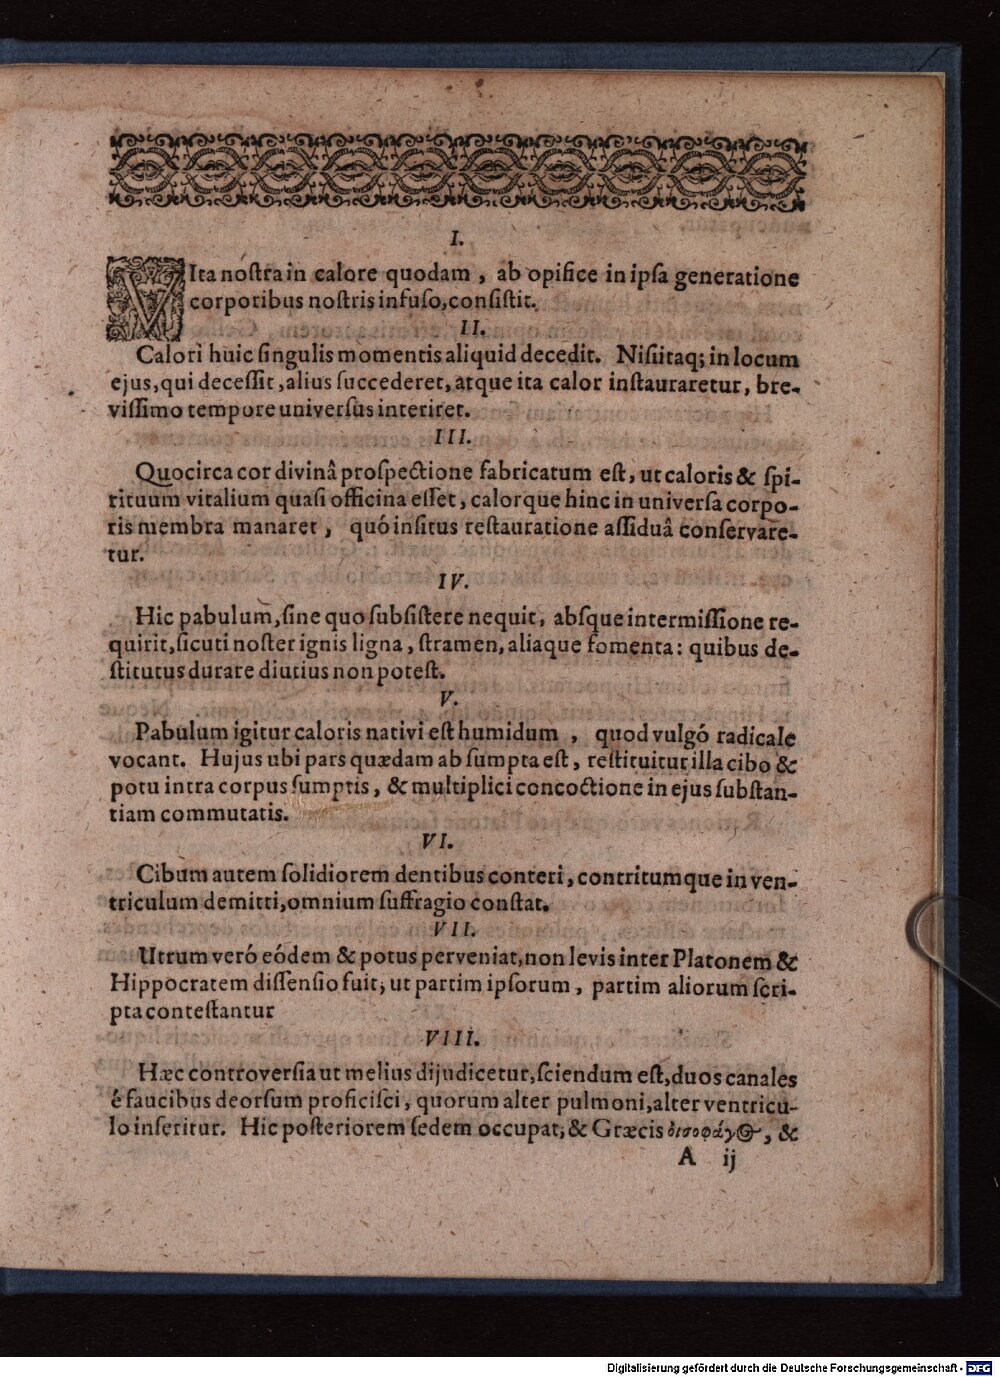 I.
VIta nostra in calore quodam, ab opifice in ipsa generatione
corporibus nostris infuso, consistit.
II.
Calori huic singulis momentis aliquid decedit. Nisi itaq; in locum
ejus, qui decessit, alius succederet, atque ita calor instauraretur, bre-
vissimo tempore universus interiret.
III.
Quocirca cor divinâ prospectione fabricatum est, ut caloris & spi-
rituum vitalium quasi officina esset, calorque hinc in universa corpo-
ris membra manaret, quó insitus restauratione assiduâ conservare-
tur.
IV.
Hic pabulum, sine quo subsistere nequit, absque intermissione re-
quirit, sicuti noster ignis ligna, stramen, aliaque fomenta: quibus de-
stitutus durare diutius non potest.
V.
Pabulum igitur caloris nativi est humidum, quod vulgó radicale
vocant. Hujus ubi pars quædam absumpta est, restituitur illa cibo &
potu intra corpus sumptis, & multiplici concoctione in ejus substan-
tiam commutatis.
VI.
Cibum autem solidiorem dentibus conteri, contritumque in ven-
triculum demitti, omnium suffragio constat.
VII.
Utrum veró eódem & potus perveniat, non levis inter Platonem &
Hippocratem dissensio fuit; ut partim ipsorum, partim aliorum scri-
pta contestantur
VIII.
Hæc controversia ut melius dijudicetur, sciendum est, duos canales
é faucibus deorsum proficisci, quorum alter pulmoni, alter ventricu-
lo inseritur. Hic posteriorem sedem occupat; & Græcis οισοφάγος, &
A ij
Digitalisierung gefördert durch die Deutsche Forschungsgemeinschaft - DFG